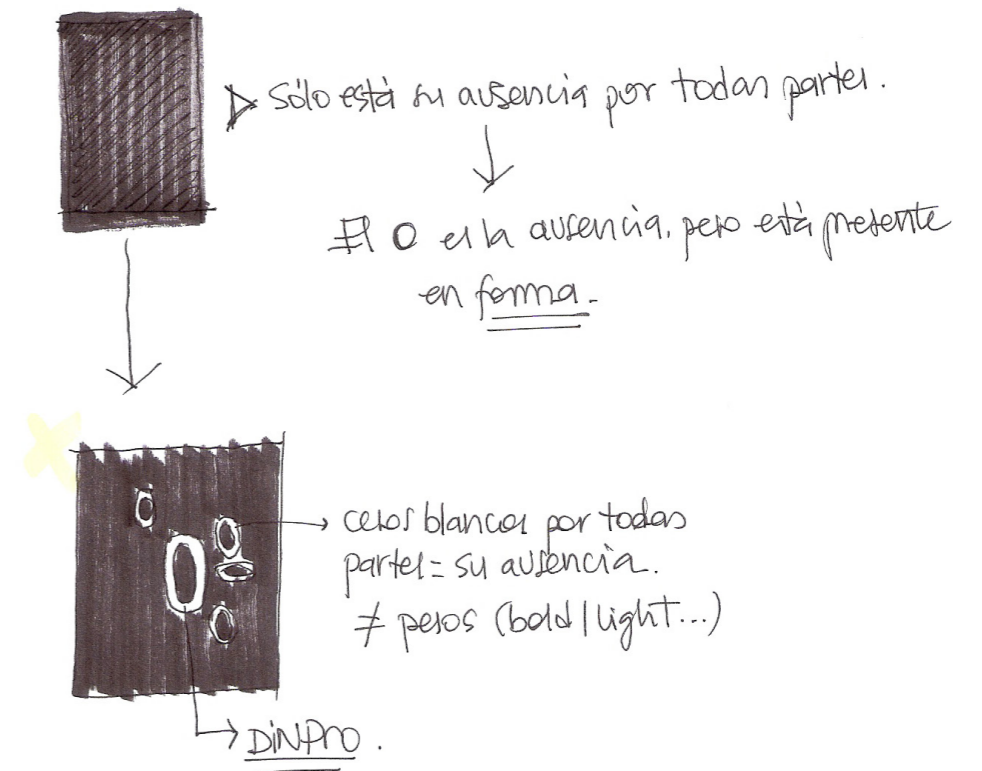 Sólo está su ausencia por todas partes.
El 0 es la ausencia, pero está presente
en forma.
ceros blancos por todas
partes = su ausencia.
≠ pesos (bold/light...)
DINPro.